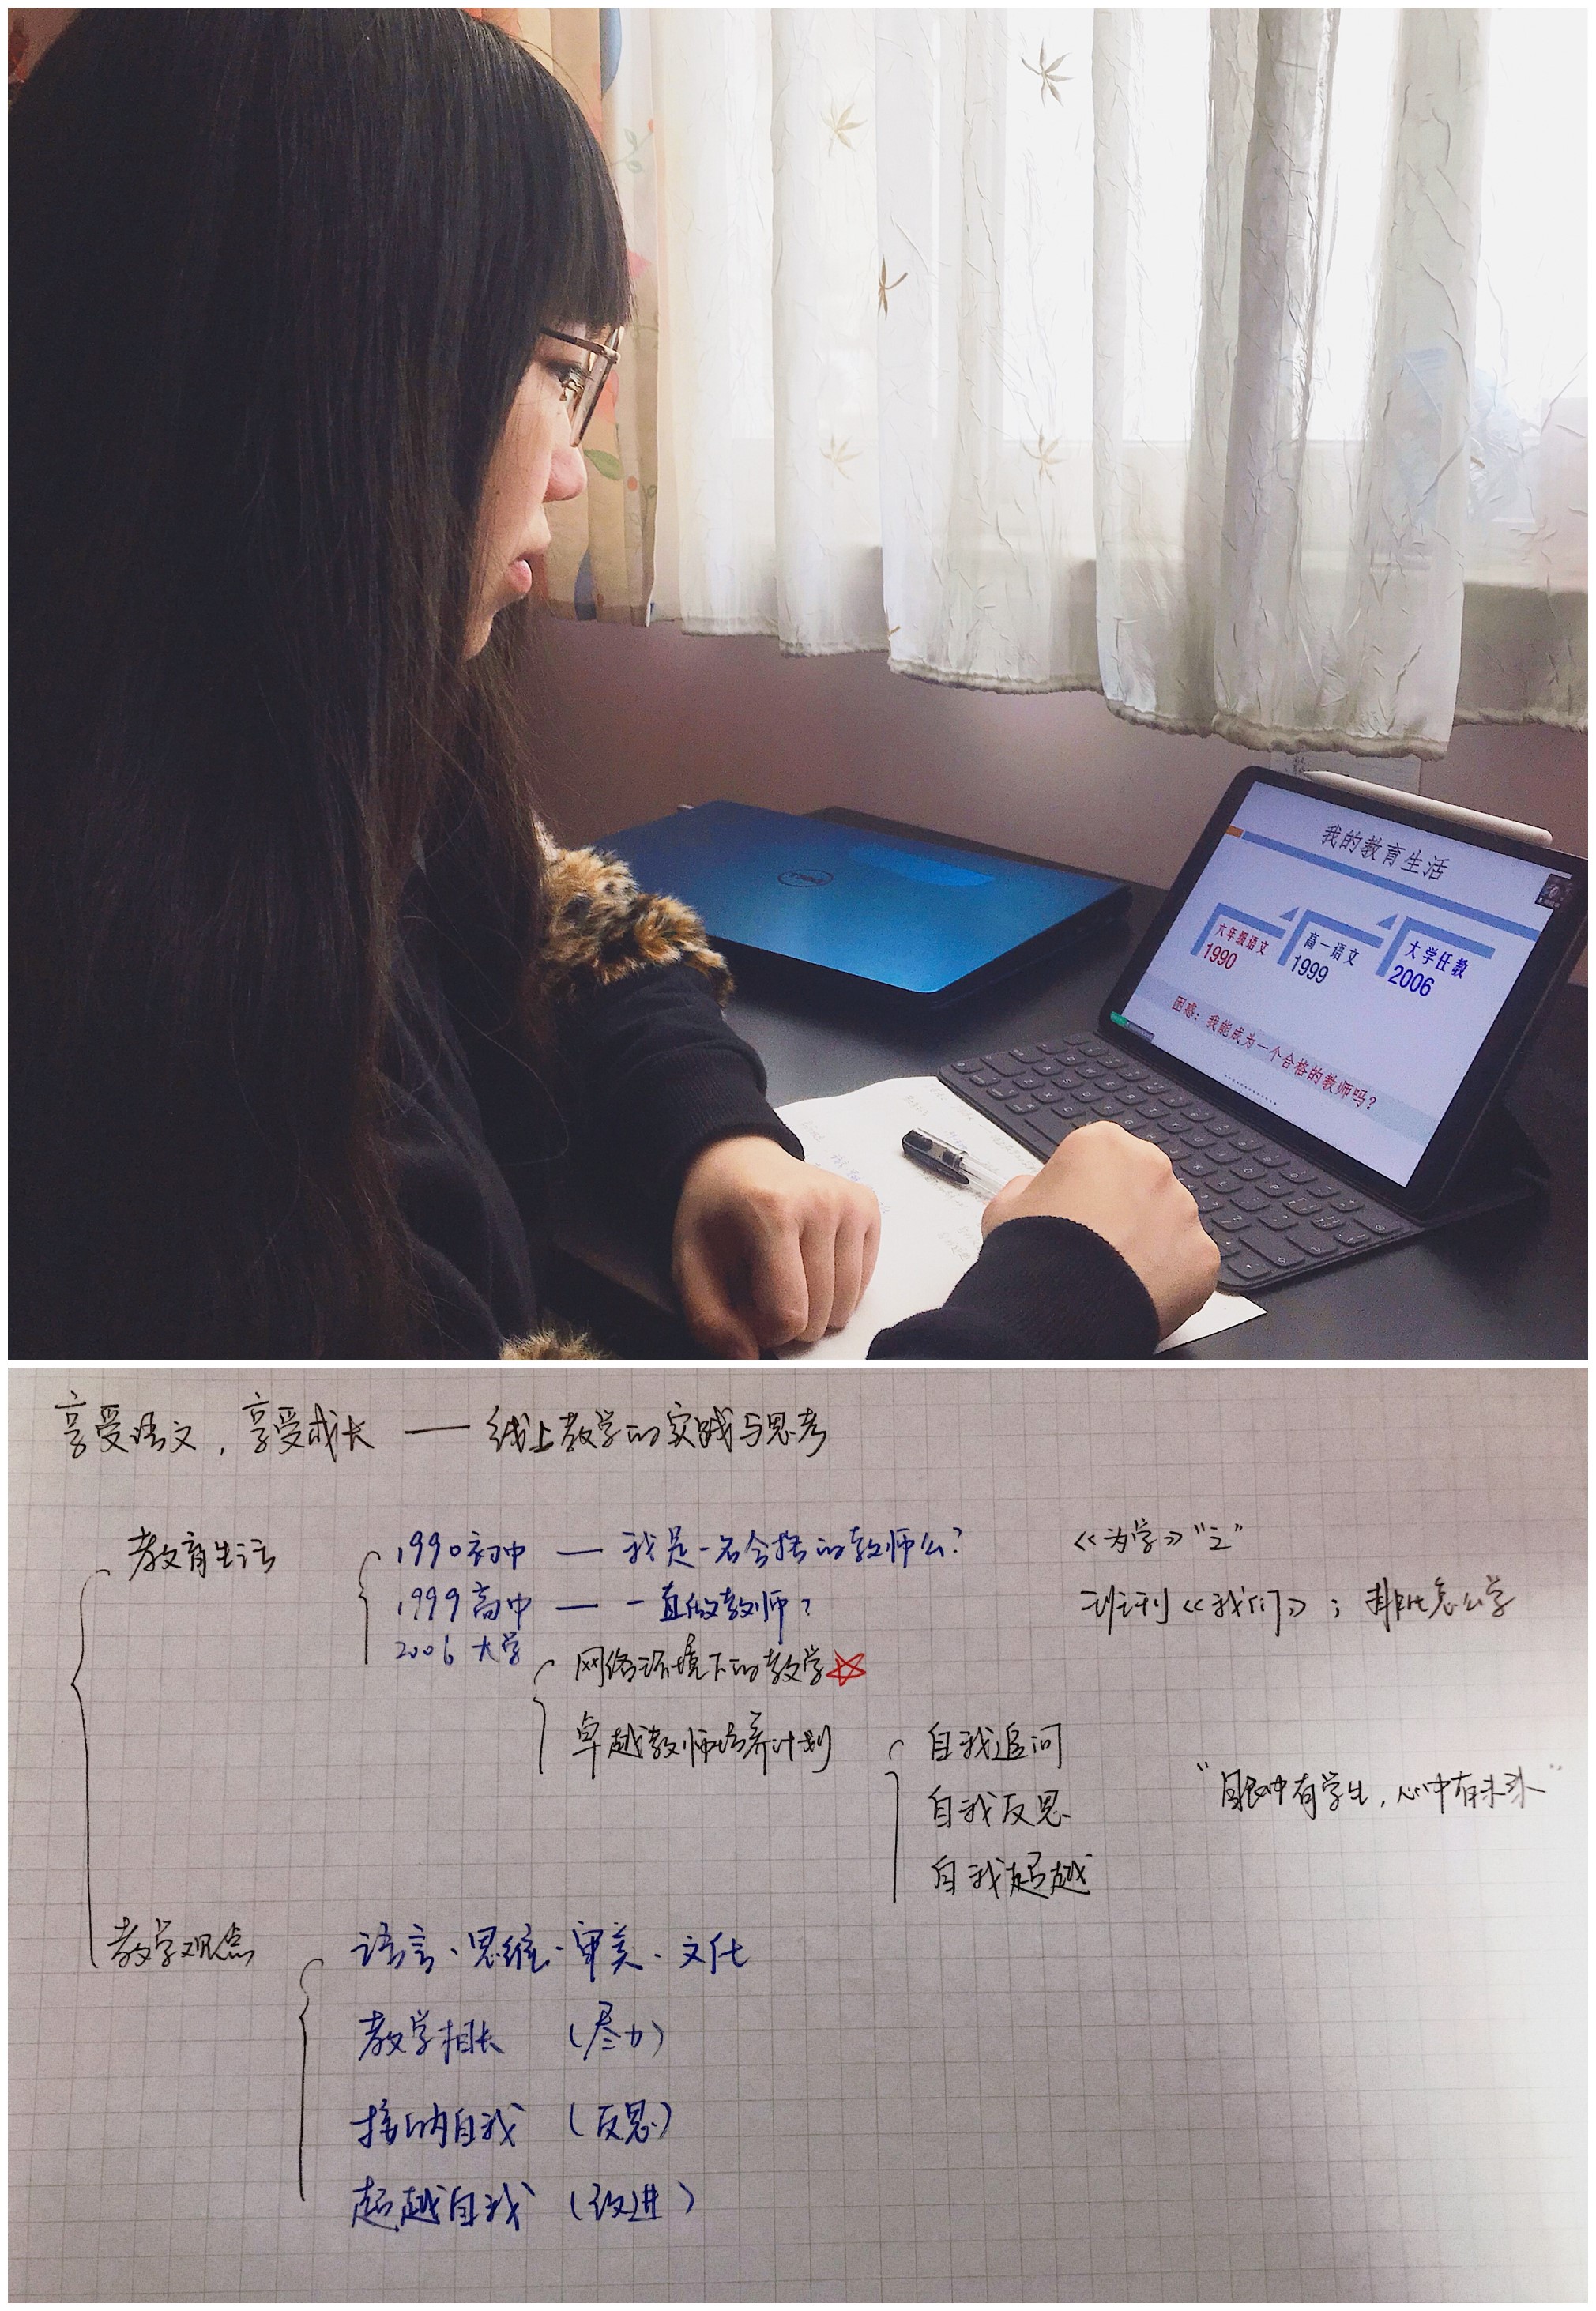 DELL
我的教育生活
六年级语文
1990
高一语文
1999
大学任教
2006
困惑：我能成为一个合格的教师吗？
享受语文，享受成长 —— 线上教学的实践与思考
教育生活
1990初中 — 我是一名合格的教师么？
《为学》“之”
1999高中 — 一直做教师？
班刊《我们》；排比怎么学
2006 大学
网络环境下的教学☆
卓越教师培养计划
自我追问
自我反思
“眼中有学生，心中有未来”
自我超越
教学观点
语言·思维·审美·文化
教学相长 （尽力）
接纳自我 （反思）
超越自我 （改进）